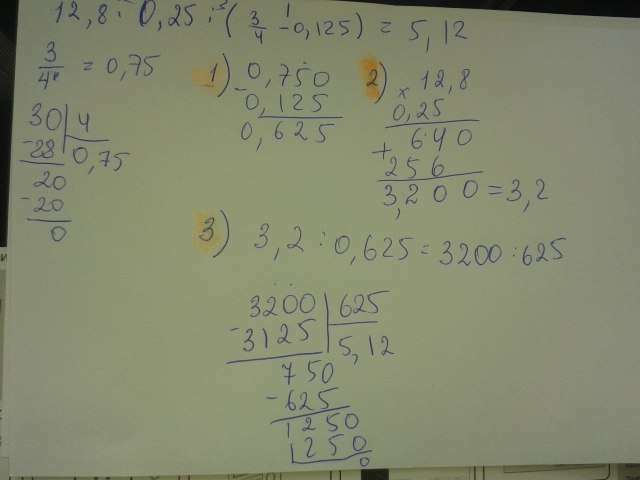 12,8 · 0,25 : (3/4 - 0,125) = 5,12
3/4 = 0,75
30 | 4
-28 | 0,75
20
-20
0
1) 0,750
- 0,125
0,625
2) × 12,8
0,25
+ 640
256
3,200 = 3,2
3) 3,2 : 0,625 = 3200 : 625
3200 | 625
-3125 | 5,12
750
-625
1250
1250
0